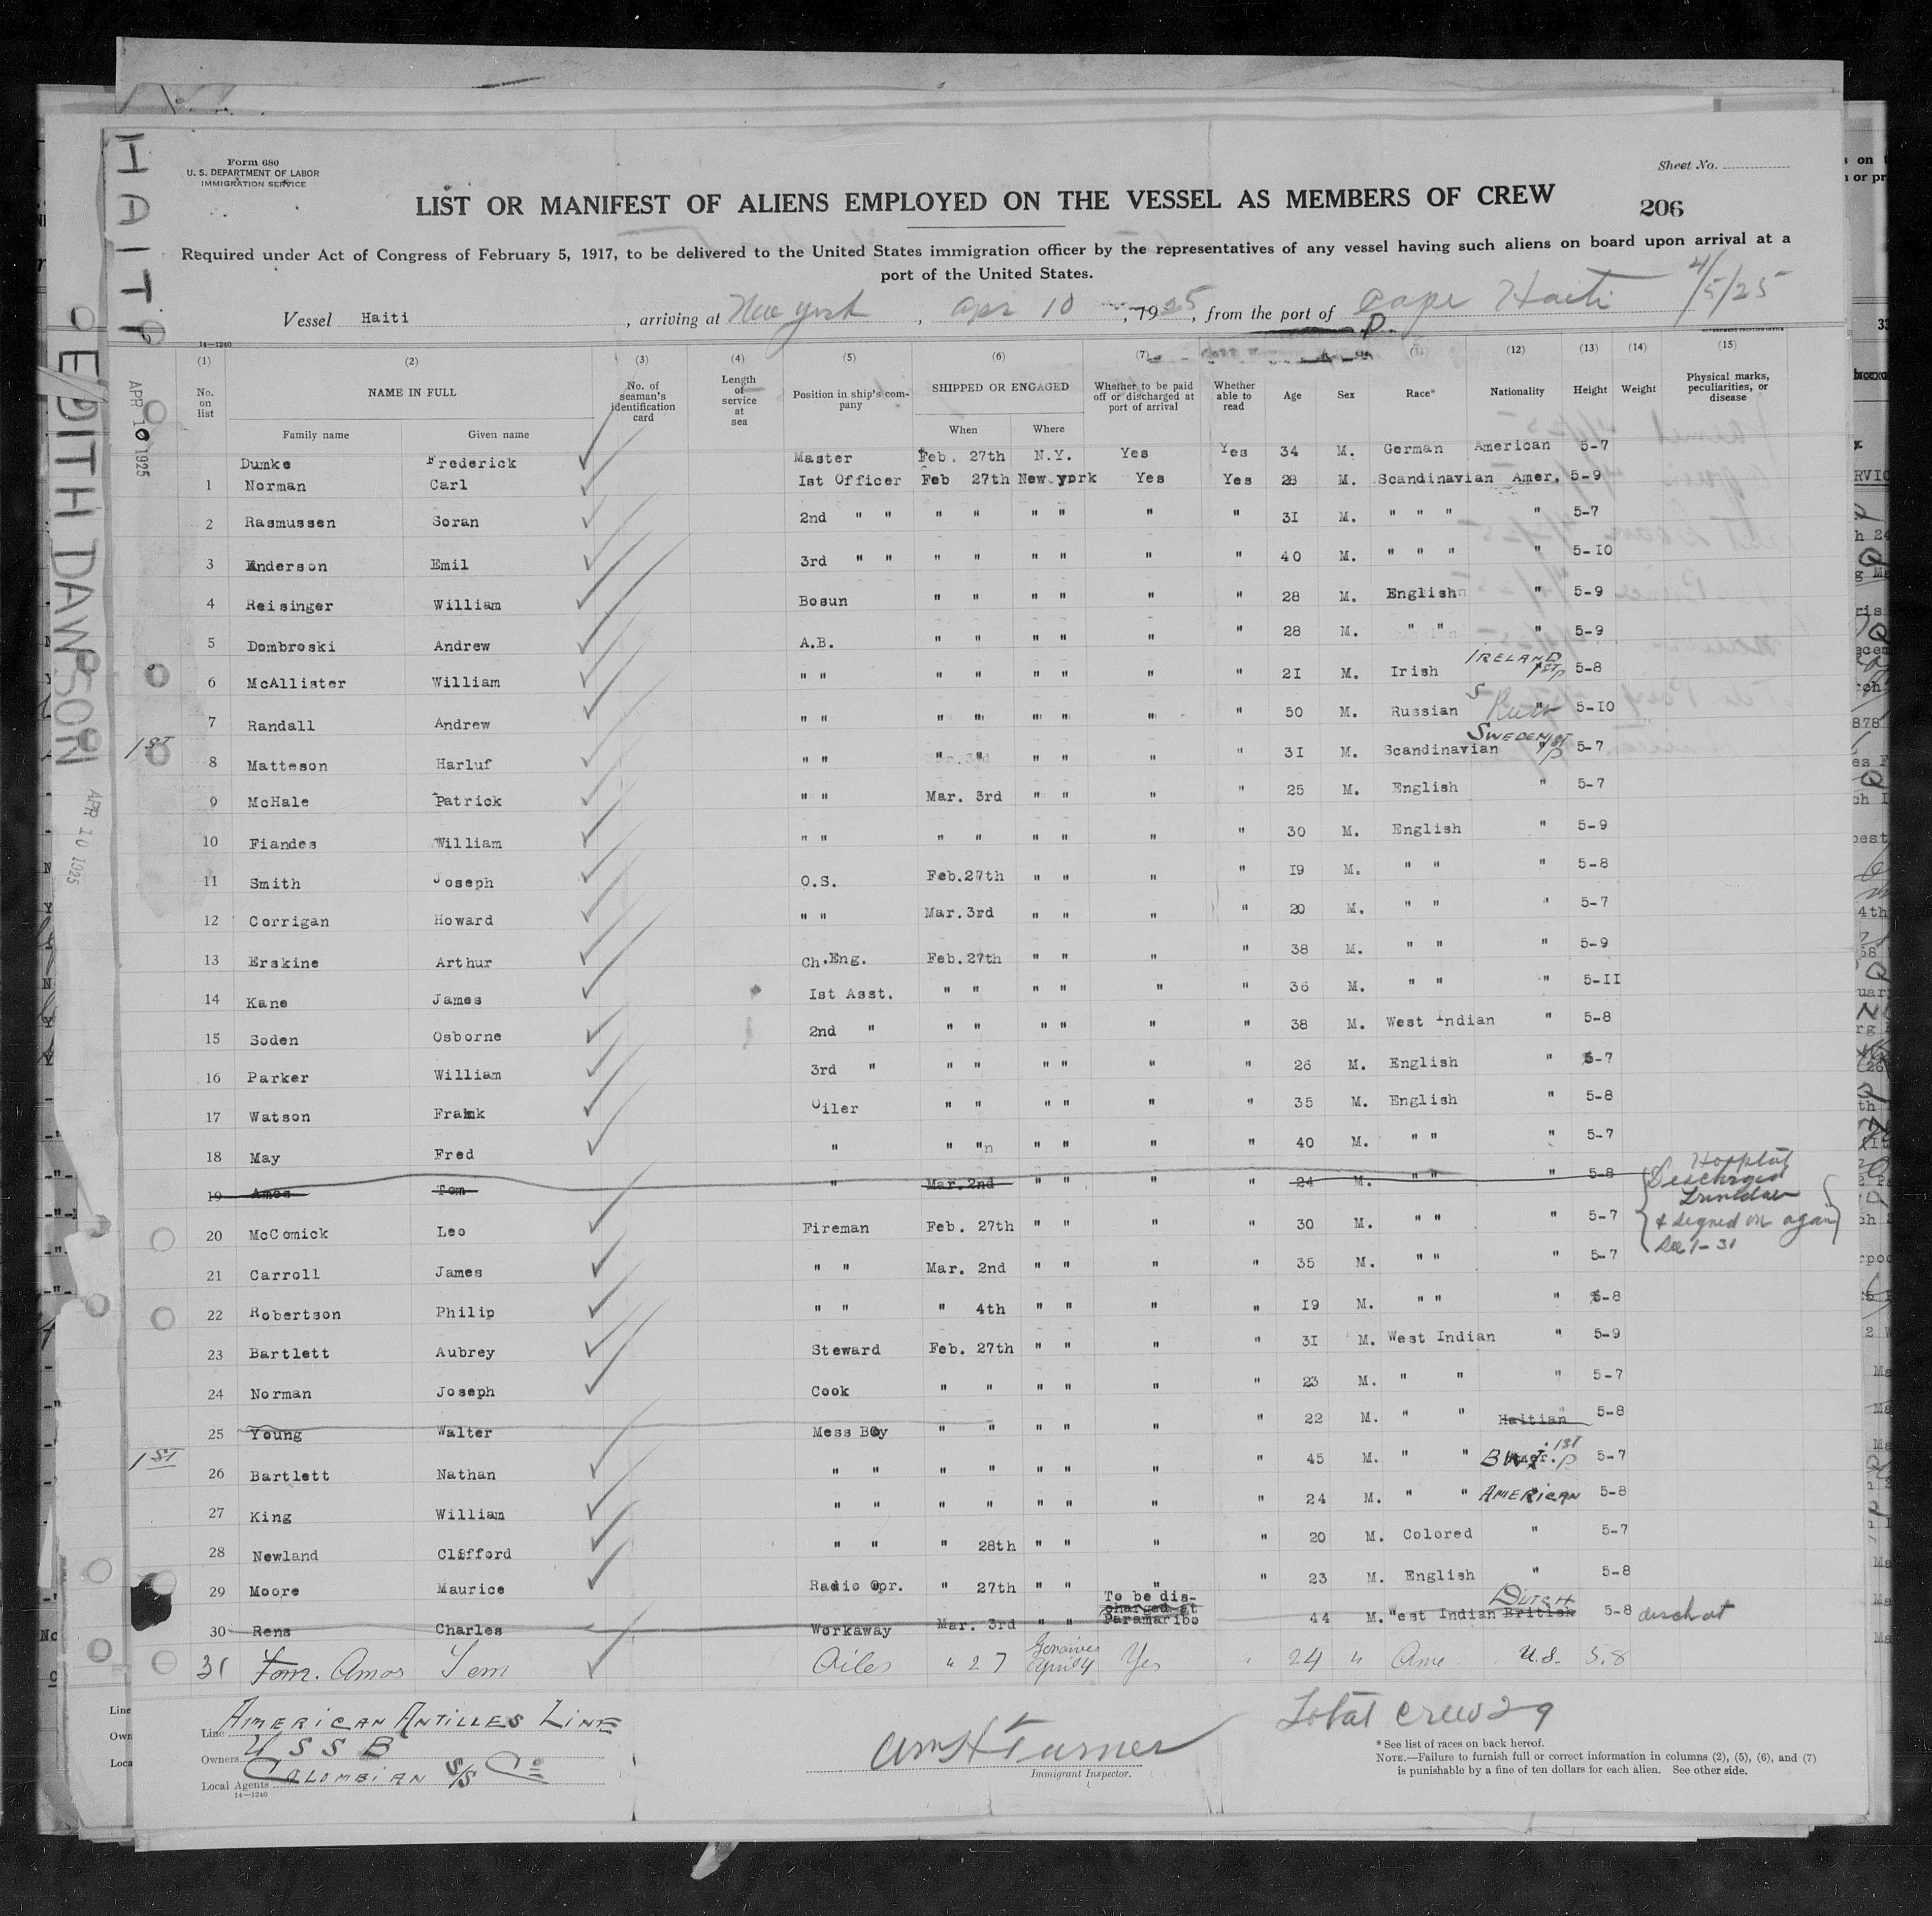 HAITI
EDITH DAWSON
APR 10 1925
APR 10 1925
Form 680
U. S. DEPARTMENT OF LABOR
IMMIGRATION SERVICE
Sheet No.
LIST OR MANIFEST OF ALIENS EMPLOYED ON THE VESSEL AS MEMBERS OF CREW
206
Required under Act of Congress of February 5, 1917, to be delivered to the United States immigration officer by the representatives of any vessel having such aliens on board upon arrival at a
port of the United States.
Vessel Haiti, arriving at New York, Apr 10, 1925, from the port of Cape Haiti 4/5/25
14—1240
(1) (2) (3) (4) (5) (6) (7) (11) (12) (13) (14) (15)
No. on list NAME IN FULL No. of seaman's identification card Length of service at sea Position in ship's company SHIPPED OR ENGAGED Whether to be paid off or discharged at port of arrival Whether able to read Age Sex Race* Nationality Height Weight Physical marks, peculiarities, or disease
Family name Given name When Where
Dumke Frederick Master Feb. 27th N.Y. Yes Yes 34 M. German American 5-7
1 Norman Carl Ist Officer Feb 27th New york Yes Yes 28 M. Scandinavian Amer. 5-9
2 Rasmussen Soran 2nd " " " " " " " " 3I M. " " " " 5-7
3 Anderson Emil 3rd " " " " " " " " 40 M. " " " " 5-I0
4 Reisinger William Bosun " " " " " " 28 M. English " 5-9
5 Dombroski Andrew A.B. " " " " " " 28 M. " " " 5-9
6 McAllister William " " " " " " " " 2I M. Irish IRELAND 1ST P 5-8
7 Randall Andrew " " " " " " " " 50 M. Russian 5-I0
1ST 8 Matteson Harluf " " " " " " " " 3I M. Scandinavian SWEDEN 1ST P 5-7
9 McHale Patrick " " Mar. 3rd " " " " 25 M. English " 5-7
10 Fiandes William " " " " " " " " 30 M. English " 5-9
11 Smith Joseph O.S. Feb.27th " " " " I9 M. " " " 5-8
12 Corrigan Howard " " Mar.3rd " " " " 20 M. " " " 5-7
13 Erskine Arthur Ch.Eng. Feb.27th " " " " 38 M. " " " 5-9
14 Kane James Ist Asst. " " " " " " 36 M. " " " 5-II
15 Soden Osborne 2nd " " " " " " " 38 M. West Indian " 5-8
16 Parker William 3rd " " " " " " " 26 M. English " 5-7
17 Watson Frank Oiler " " " " " " 35 M. English " 5-8
18 May Fred " " " " " " " 40 M. " " " 5-7
19 Amos Tom " Mar.2nd " " " " 24 M. " " " 5-8 Hospital Discharged & signed on again See 1-31
20 McComick Leo Fireman Feb. 27th " " " " 30 M. " " " 5-7
21 Carroll James " " Mar. 2nd " " " " 35 M. " " " 5-7
22 Robertson Philip " " " 4th " " " " I9 M. " " " 5-8
23 Bartlett Aubrey Steward Feb. 27th " " " " 3I M. West Indian " 5-9
24 Norman Joseph Cook " " " " " " 23 M. " " " 5-7
25 Young Walter Mess Boy " " " " " " 22 M. " " Haitian 5-8
1ST 26 Bartlett Nathan " " " " " " " " 45 M. " " B.W.I. 1ST P 5-7
27 King William " " " " " " " " 24 M. " " AMERICAN 5-8
28 Newland Clifford " " " 28th " " " " 20 M. Colored " 5-7
29 Moore Maurice Radio Opr. " 27th " " " " 23 M. English " 5-8
30 Rens Charles Workaway Mar. 3rd " " To be discharged at Paramaribo 44 M. West Indian British DUTCH 5-8 disch at
31 Tom. Amos Tom Oiler " 27 Gonaives April 4 Yes " 24 " Ame U.S. 5.8
Line AMERICAN ANTILLES LINE
Owners U S S B
Local Agents COLOMBIAN S/S Co
14—1240
Wm H Turner
Immigrant Inspector.
Total crew 29
* See list of races on back hereof.
NOTE.—Failure to furnish full or correct information in columns (2), (5), (6), and (7)
is punishable by a fine of ten dollars for each alien. See other side.